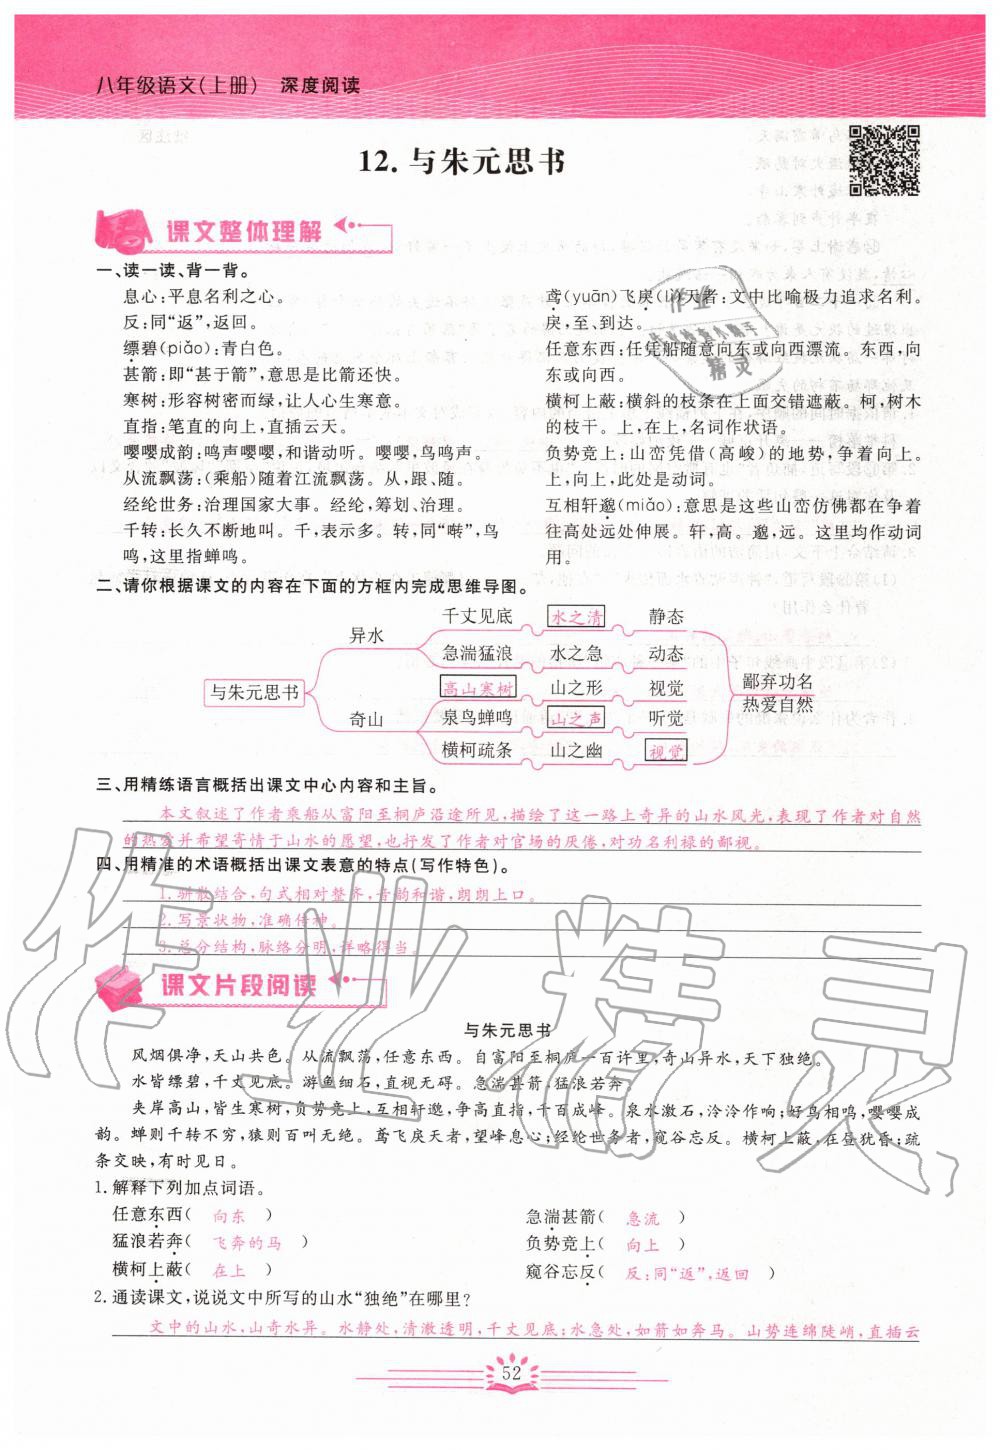 八年级语文(上册) 深度阅读
12. 与朱元思书
课文整体理解
一、读一读、背一背。
息心:平息名利之心。
反:同“返”,返回。
缥碧(piǎo):青白色。
甚箭:即“甚于箭”,意思是比箭还快。
寒树:形容树密而绿,让人心生寒意。
直指:笔直的向上,直插云天。
嘤嘤成韵:鸣声嘤嘤,和谐动听。嘤嘤,鸟鸣声。
从流飘荡:(乘船)随着江流飘荡。从,跟、随。
经纶世务:治理国家大事。经纶,筹划、治理。
千转:长久不断地叫。千,表示多。转,同“啭”,鸟
鸣,这里指蝉鸣。
鸢(yuān)飞戾(lì)天者:文中比喻极力追求名利。
戾,至、到达。
任意东西:任凭船随意向东或向西漂流。东西,向
东或向西。
横柯上蔽:横斜的枝条在上面交错遮蔽。柯,树木
的枝干。上,在上,名词作状语。
负势竞上:山峦凭借(高峻)的地势,争着向上。
上,向上,此处是动词。
互相轩邈(miǎo):意思是这些山峦仿佛都在争着
往高处远处伸展。轩,高。邈,远。这里均作动词
用。
二、请你根据课文的内容在下面的方框内完成思维导图。
与朱元思书
异水
千丈见底 水之清 静态
急湍猛浪 水之急 动态
奇山
高山寒树 山之形 视觉
泉鸟蝉鸣 山之声 听觉
横柯疏条 山之幽 视觉
鄙弃功名
热爱自然
三、用精练语言概括出课文中心内容和主旨。
本文叙述了作者乘船从富阳至桐庐沿途所见,描绘了这一路上奇异的山水风光,表现了作者对自然
的热爱并希望寄情于山水的愿望,也抒发了作者对官场的厌倦,对功名利禄的鄙视。
四、用精准的术语概括出课文表意的特点(写作特色)。
1. 骈散结合,句式相对整齐,音韵和谐,朗朗上口。
2. 写景状物,准确传神。
3. 总分结构,脉络分明,详略得当。
课文片段阅读
与朱元思书
风烟俱净,天山共色。从流飘荡,任意东西。自富阳至桐庐一百许里,奇山异水,天下独绝。
水皆缥碧,千丈见底。游鱼细石,直视无碍。急湍甚箭,猛浪若奔。
夹岸高山,皆生寒树,负势竞上,互相轩邈,争高直指,千百成峰。泉水激石,泠泠作响;好鸟相鸣,嘤嘤成
韵。蝉则千转不穷,猿则百叫无绝。鸢飞戾天者,望峰息心;经纶世务者,窥谷忘反。横柯上蔽,在昼犹昏;疏
条交映,有时见日。
1. 解释下列加点词语。
任意东西( 向东 ) 急湍甚箭( 急流 )
猛浪若奔( 飞奔的马 ) 负势竞上( 向上 )
横柯上蔽( 在上 ) 窥谷忘反( 反:同“返”,返回 )
2. 通读课文,说说文中所写的山水“独绝”在哪里?
文中的山水,山奇水异。水静处,清澈透明,千丈见底;水急处,如箭如奔马。山势连绵陡峭,直插云
52
作业精灵